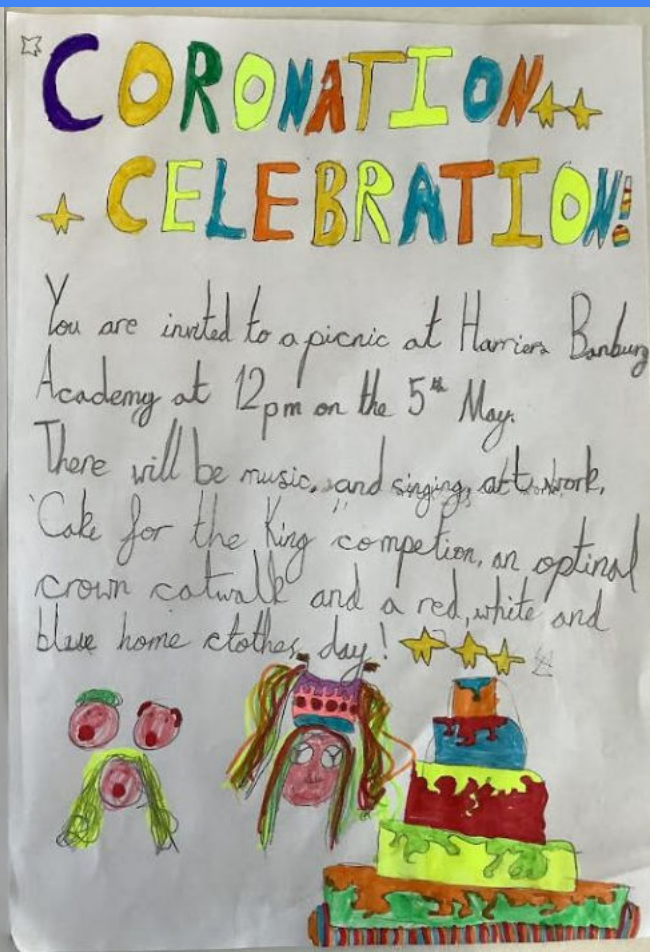 CORONATION
CELEBRATION!
You are invited to a picnic at Harriers Banbury
Academy at 12pm on the 5th May.
There will be music, and singing, art work,
'Cake for the King" competion, an optinal
crown catwalk and a red, white and
blue home clothes day!